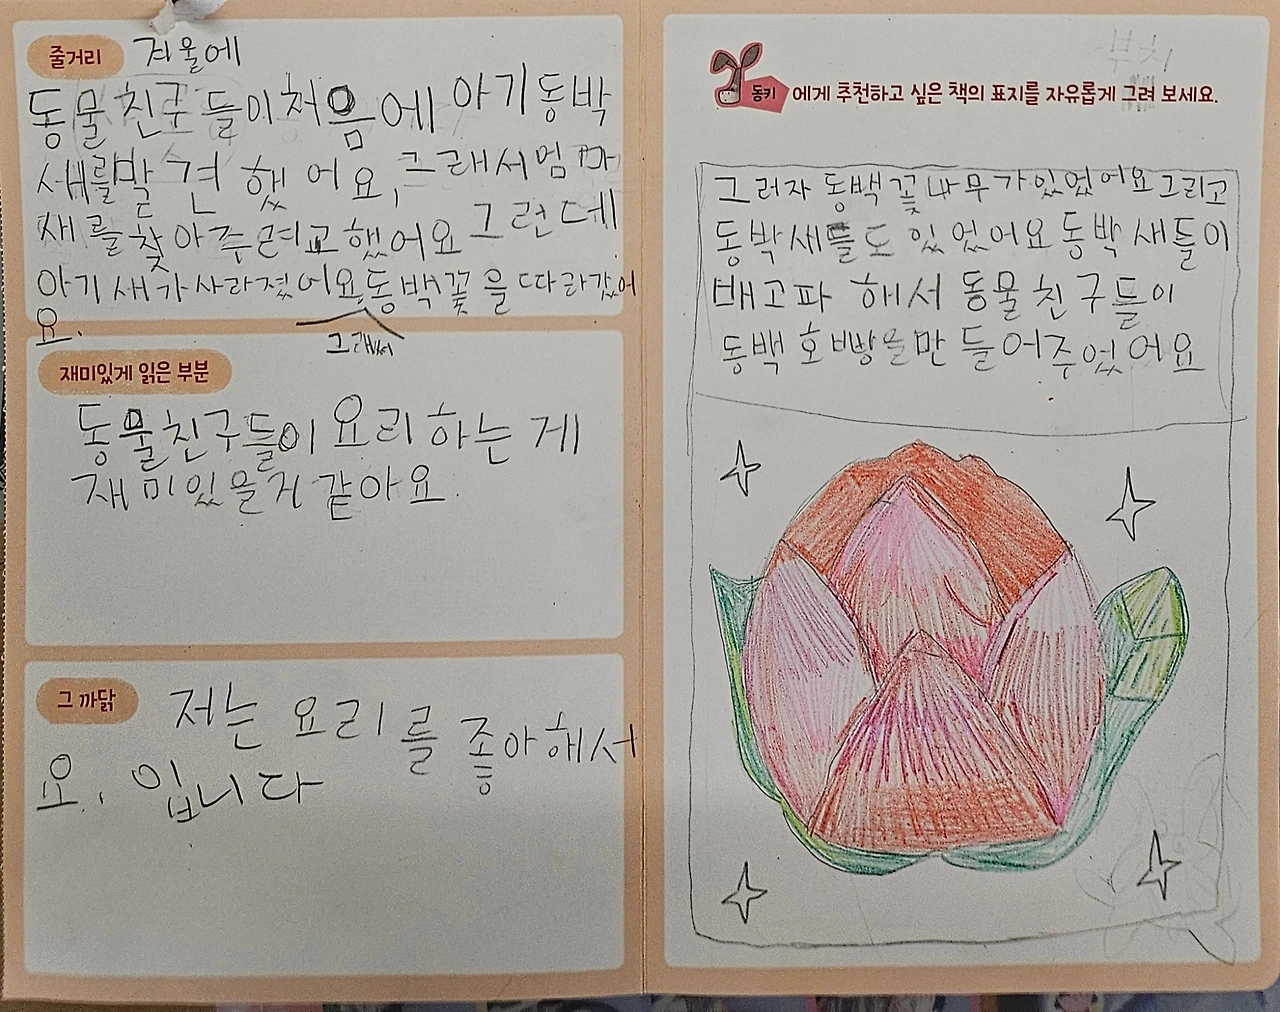 줄거리 겨울에
동물친구들이처음에 아기동박
새를발견했어요, 그래서엄마
새를찾아주려고했어요 그런데
아기새가사라졌어요동백꽃을따라갔어
요.
그래서
재미있게 읽은 부분
동물친구들이 요리하는게
재미있을거같아요
그 까닭
저는 요리를 좋아해서
요. 입니다
동키 에게 추천하고 싶은 책의 표지를 자유롭게 그려 보세요.
그러자 동백꽃나무가있었어요그리고
동박새들도 있었어요동박새들이
배고파 해서 동물친구들이
동백호빵을만들어주었어요